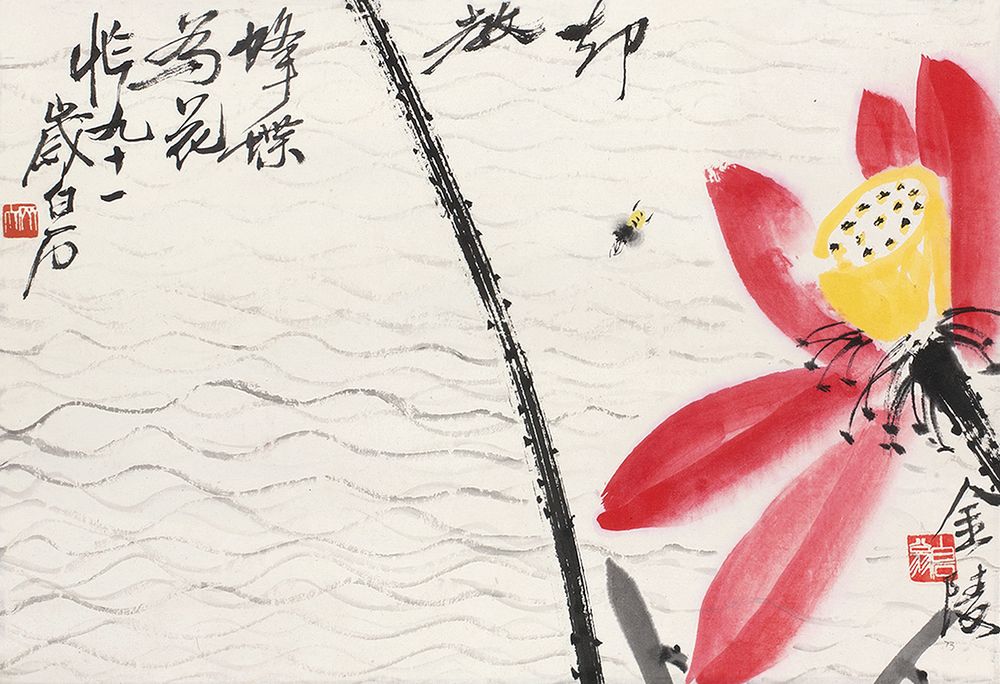 金陵
却
教
蜂蝶
為花
忙九十一
歲白石